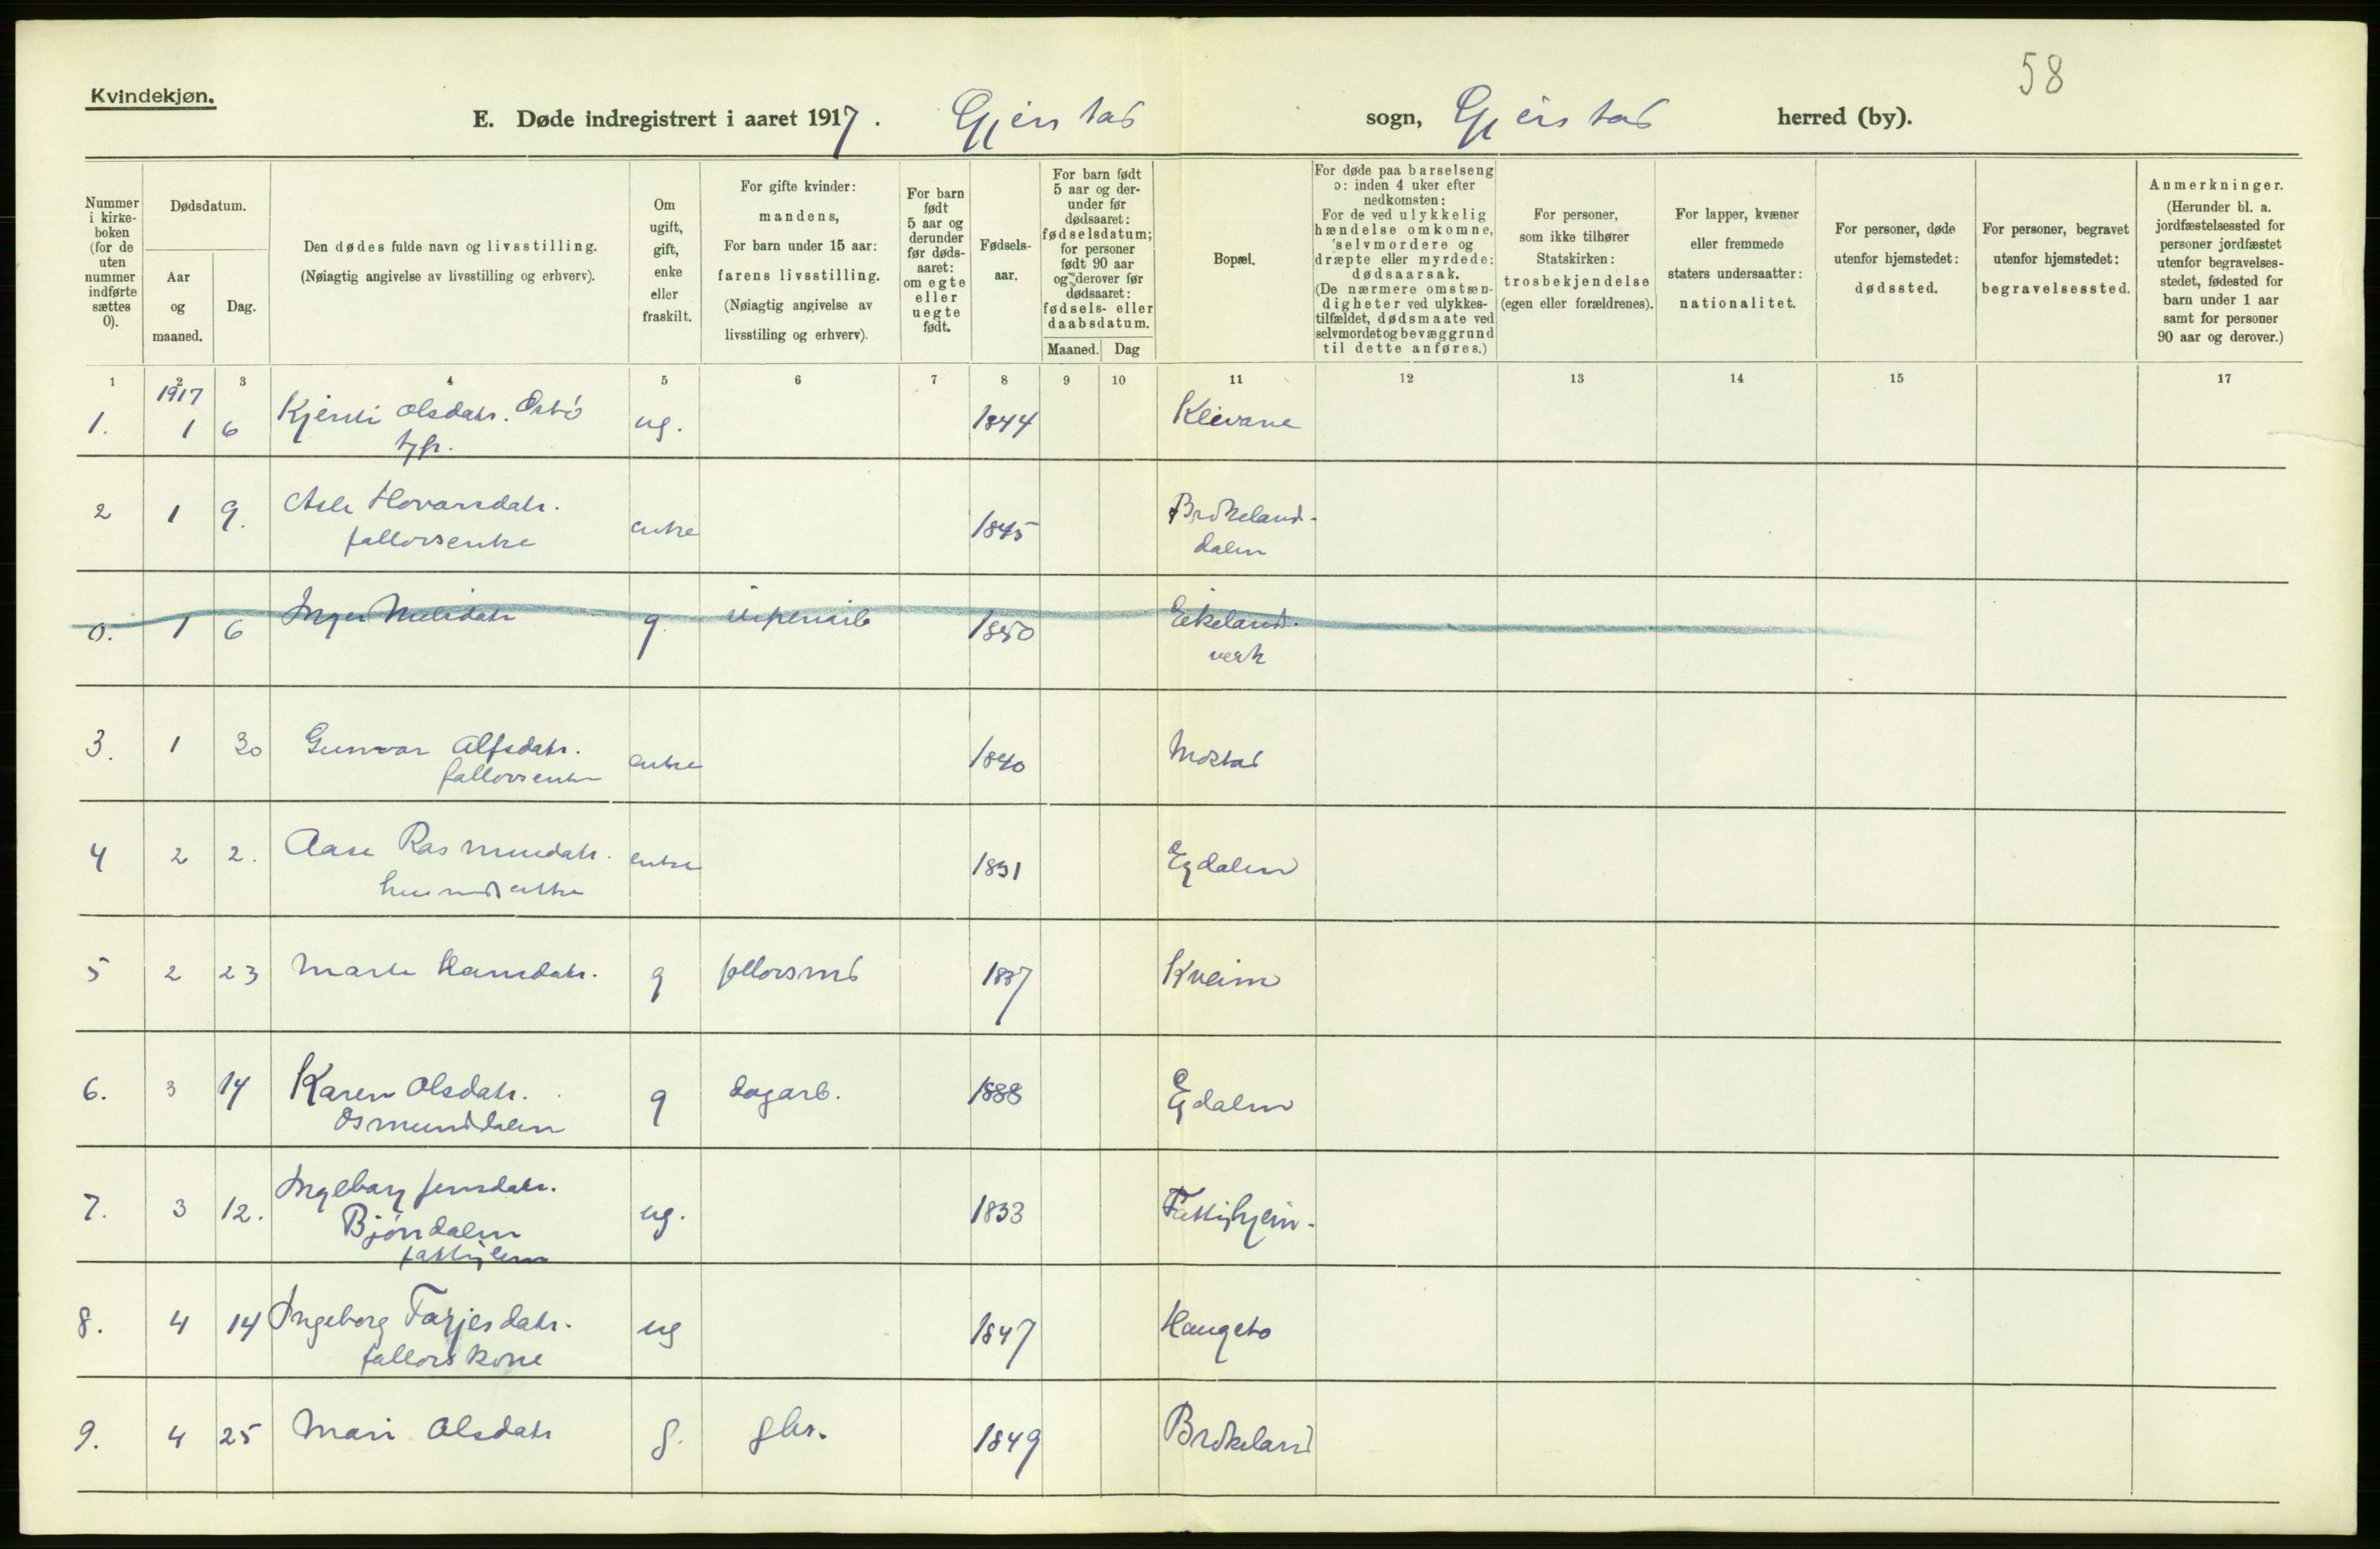 58
Kvindekjøn.
E. Døde indregistrert i aaret 1917. Gjerstad sogn, Gjerstad herred (by).
Nummer i kirke-boken (for de uten nummer indførte sættes 0).
Dødsdatum.
Aar og maaned.
Dag.
Den dødes fulde navn og livsstilling.
(Nøiagtig angivelse av livsstilling og erhverv).
Om ugift, gift, enke eller fraskilt.
For gifte kvinder: mandens,
For barn under 15 aar: farens livsstilling.
(Nøiagtig angivelse av livsstiling og erhverv).
For barn født 5 aar og derunder før døds-aaret: om egte eller uegte født.
Fødsels-aar.
For barn født 5 aar og der-under før dødsaaret: fødselsdatum; for personer født 90 aar og derover før dødsaaret: fødsels- eller daabsdatum.
Maaned. Dag
Bopæl.
For døde paa barselseng ɔ: inden 4 uker efter nedkomsten:
For de ved ulykkelig hændelse omkomne, selvmordere og dræpte eller myrdede: dødsaarsak.
(De nærmere omstæn-digheter ved ulykkes-tilfældet, dødsmaate ved selvmordet og bevæggrund til dette anføres.)
For personer, som ikke tilhører Statskirken: trosbekjendelse (egen eller forældrenes).
For lapper, kvæner eller fremmede staters undersaatter: nationalitet.
For personer, døde utenfor hjemstedet: dødssted.
For personer, begravet utenfor hjemstedet: begravelsessted.
Anmerkninger.
(Herunder bl. a. jordfæstelsessted for personer jordfæstet utenfor begravelses-stedet, fødested for barn under 1 aar samt for personer 90 aar og derover.)
1 2 3 4 5 6 7 8 9 10 11 12 13 14 15 17
1917
1. 1 6 Kjersti Olsdatr. Østbö ug. 1844 Klevane
2 1 9. Asle Hovarsdatr. enke 1845 Brökeland-
fallovsenke dalen
0. 1 6 Inger Nilsdatr g. 1850 Eikelands-
verk
3. 1 30 Gunvor Alfsdatr. enke 1840 Mostad
fallovsenke
4 2 2. Aase Rasmusdatr. enke 1831 Egdalen
husmdsenke
5 2 23 Marte Hansdatr. g 1837 Kveim
6. 3 14 Karen Olsdatr. g dagarb. 1888 Egdalen
Osmunddalen
7. 3 12. Ingeborg Jensdatr. ug. 1833 Fattighjem.
Bjöndalen
fattiglem
8. 4 14 Ingeborg Tarjesdatr. ug 1847 Haugeto
fallovskone
9. 4 25 Mari Olsdatr g. gbr. 1849 Brökeland